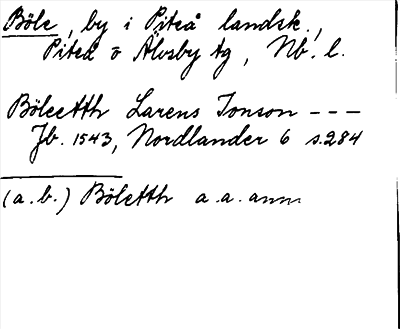 Böle, by i Piteå landsk.,
Piteå o Älvsby tg, Nb. l.
Böleetth Larens Jonson - - -
Jb. 1543, Nordlander 6 s. 284
(a. b.) Böletth a. a. anm.